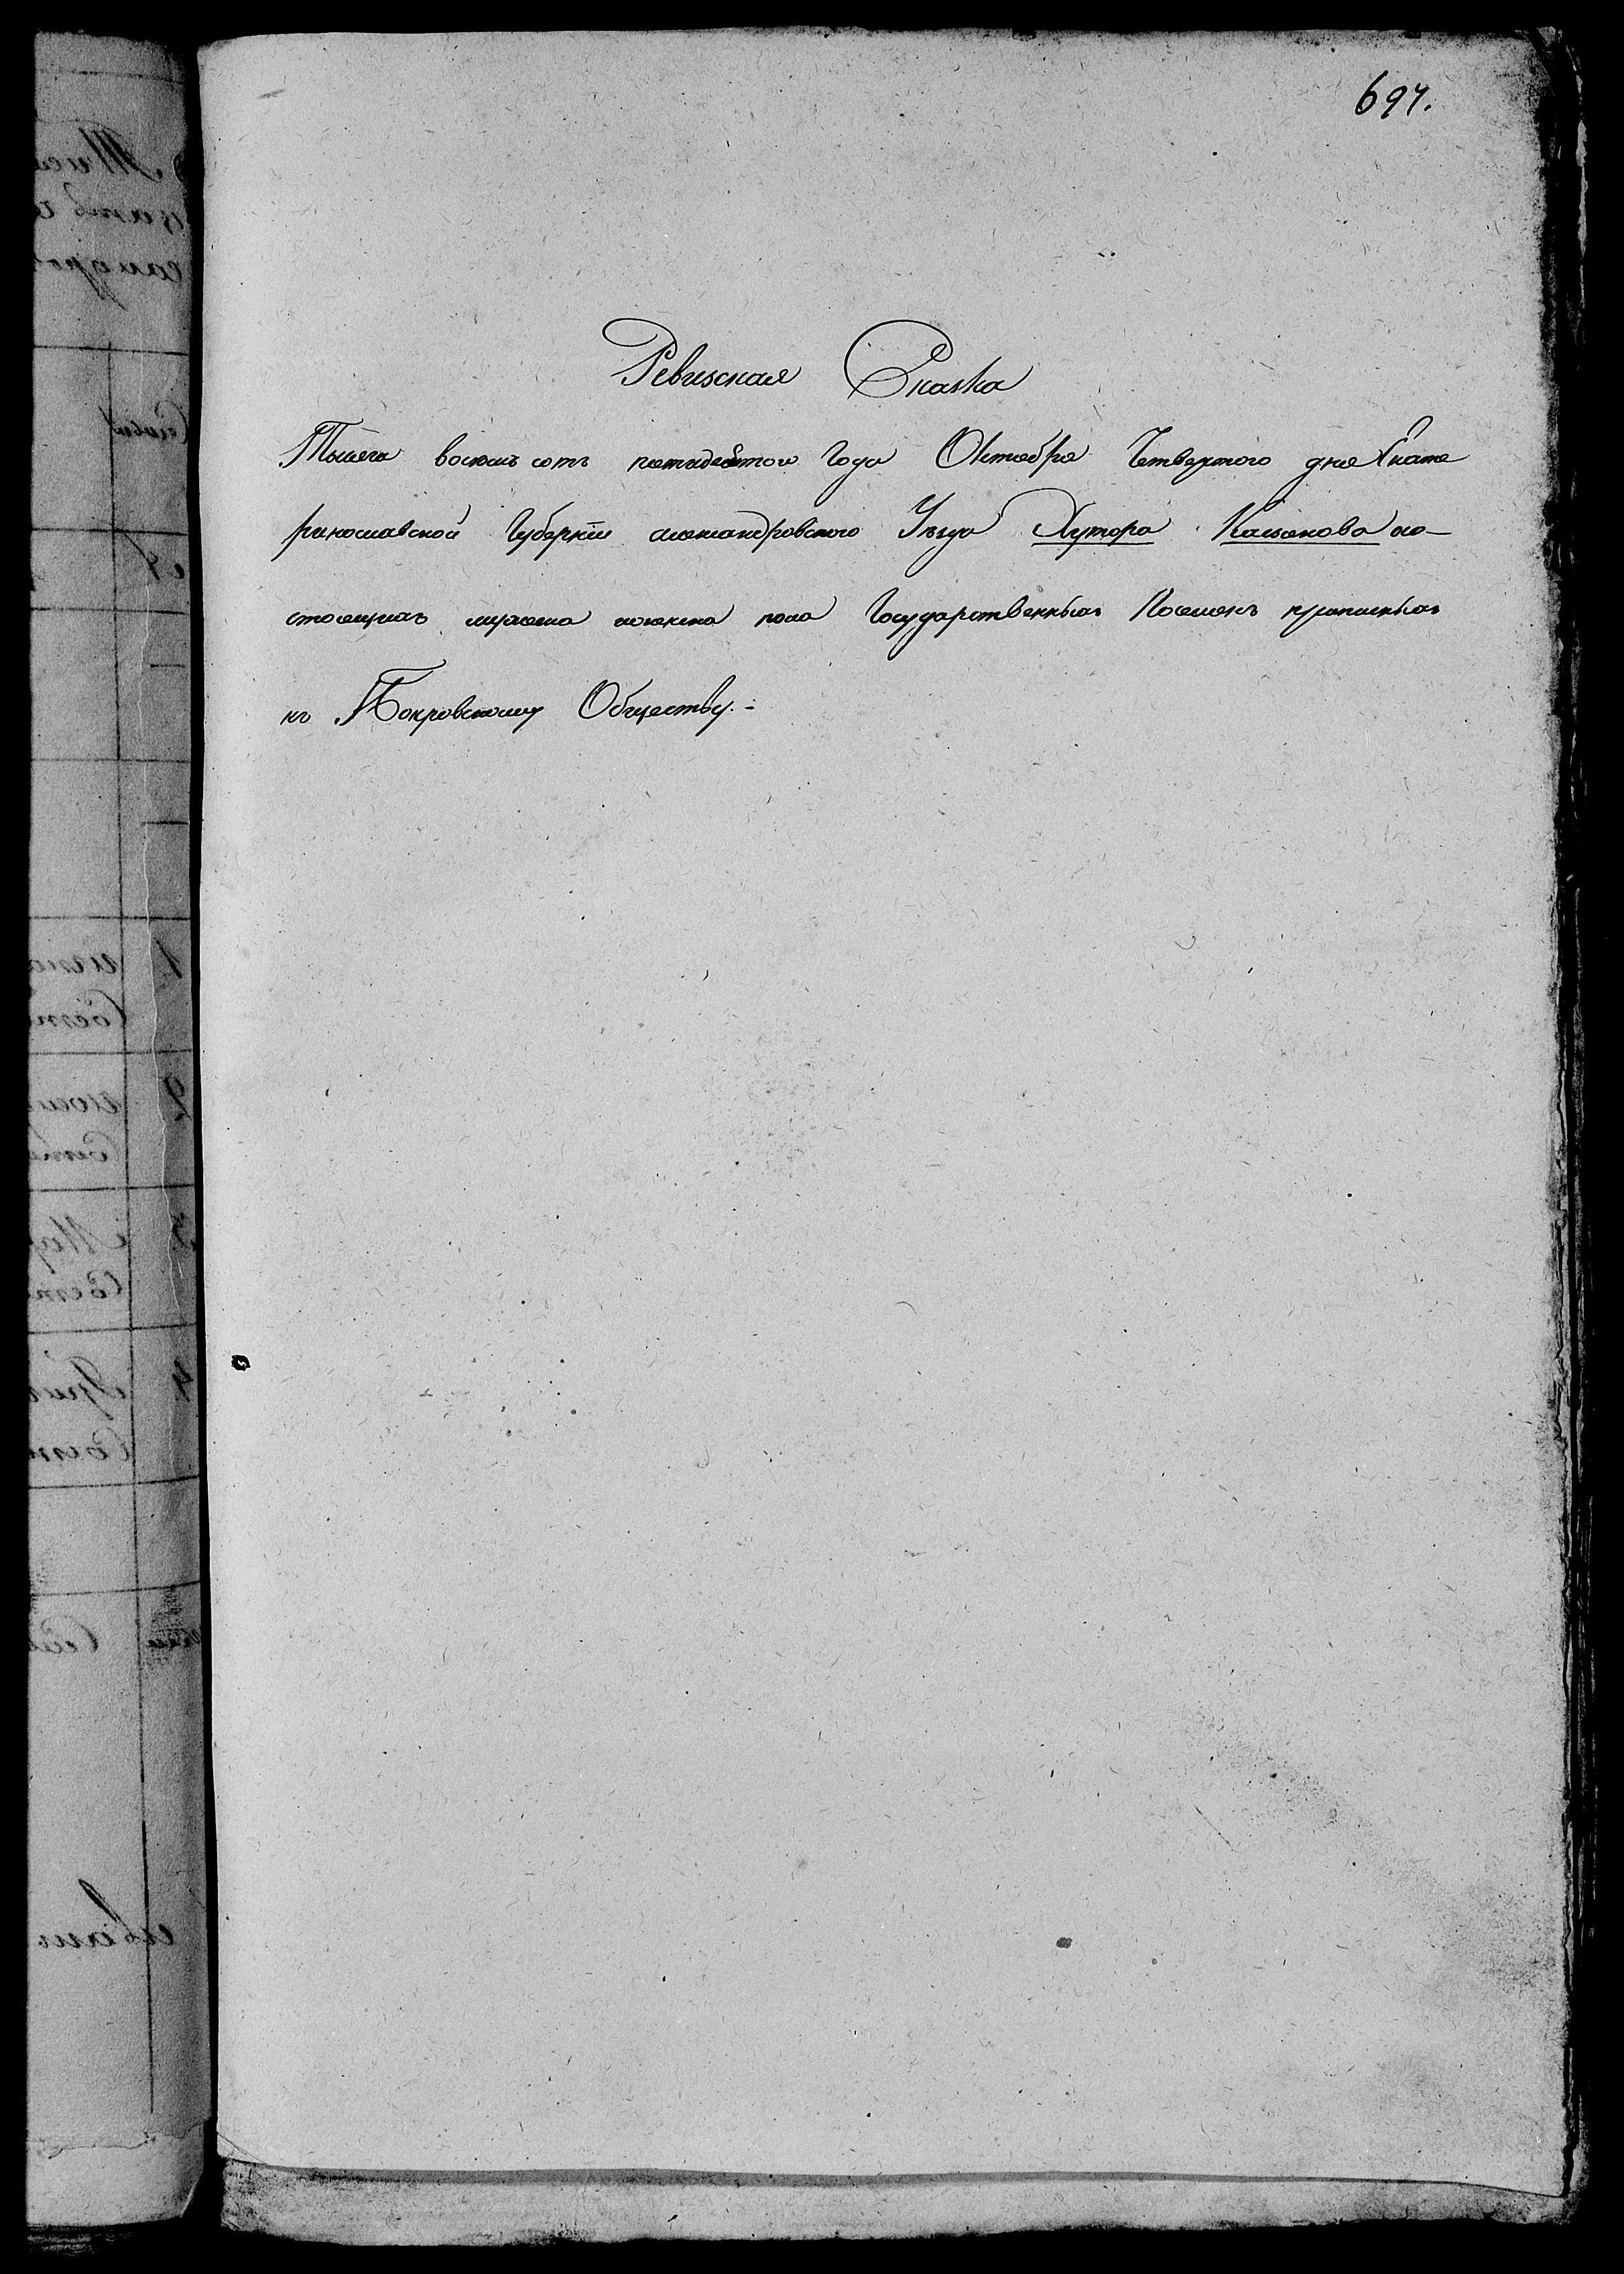 697.
Ревизская Сказка
Тысеча восемь сотъ пятидесятого Года Октября Четвертого дня Екате
ринославской Губерніи александровского Уезда Хутора Касьянова со-
стоящихъ мужеска иженска пола Государственныхъ Поселянъ приписныхъ
къ Покровскому Обществу.-